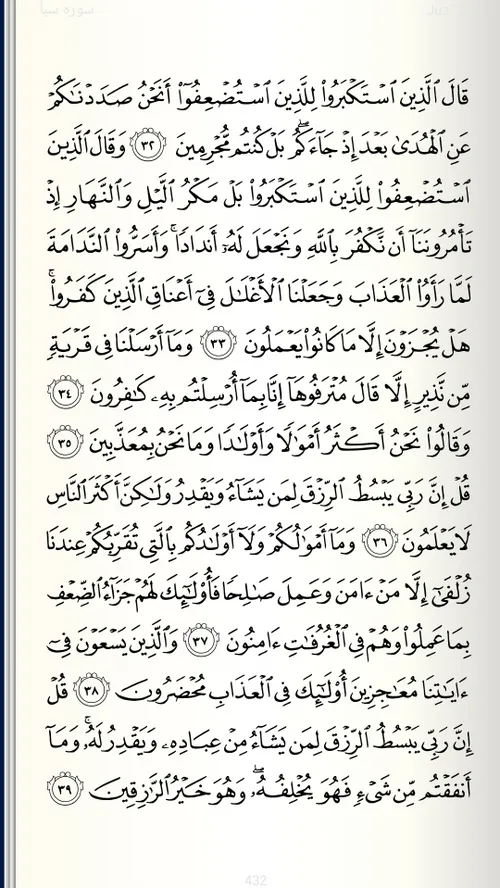 سورة سبأ
قَالَ ٱلَّذِينَ ٱسۡتَكۡبَرُواْ لِلَّذِينَ ٱسۡتُضۡعِفُوٓاْ أَنَحۡنُ صَدَدۡنَٰكُمۡ
عَنِ ٱلۡهُدَىٰ بَعۡدَ إِذۡ جَآءَكُمۖ بَلۡ كُنتُم مُّجۡرِمِينَ ٣٢ وَقَالَ ٱلَّذِينَ
ٱسۡتُضۡعِفُواْ لِلَّذِينَ ٱسۡتَكۡبَرُواْ بَلۡ مَكۡرُ ٱلَّيۡلِ وَٱلنَّهَارِ إِذۡ
تَأۡمُرُونَنَآ أَن نَّكۡفُرَ بِٱللَّهِ وَنَجۡعَلَ لَهُۥٓ أَندَادٗاۚ وَأَسَرُّواْ ٱلنَّدَامَةَ
لَمَّا رَأَوُاْ ٱلۡعَذَابَ وَجَعَلۡنَا ٱلۡأَغۡلَٰلَ فِيٓ أَعۡنَاقِ ٱلَّذِينَ كَفَرُواْۚ
هَلۡ يُجۡزَوۡنَ إِلَّا مَا كَانُواْ يَعۡمَلُونَ ٣٣ وَمَآ أَرۡسَلۡنَا فِي قَرۡيَةٖ
مِّن نَّذِيرٍ إِلَّا قَالَ مُتۡرَفُوهَآ إِنَّا بِمَآ أُرۡسِلۡتُم بِهِۦ كَٰفِرُونَ ٣٤
وَقَالُواْ نَحۡنُ أَكۡثَرُ أَمۡوَٰلٗا وَأَوۡلَٰدٗا وَمَا نَحۡنُ بِمُعَذَّبِينَ ٣٥
قُلۡ إِنَّ رَبِّي يَبۡسُطُ ٱلرِّزۡقَ لِمَن يَشَآءُ وَيَقۡدِرُ وَلَٰكِنَّ أَكۡثَرَ ٱلنَّاسِ
لَا يَعۡلَمُونَ ٣٦ وَمَآ أَمۡوَٰلُكُمۡ وَلَآ أَوۡلَٰدُكُم بِٱلَّتِي تُقَرِّبُكُمۡ عِندَنَا
زُلۡفَىٰٓ إِلَّا مَنۡ ءَامَنَ وَعَمِلَ صَٰلِحٗا فَأُوْلَٰٓئِكَ لَهُمۡ جَزَآءُ ٱلضِّعۡفِ
بِمَا عَمِلُواْ وَهُمۡ فِي ٱلۡغُرُفَٰتِ ءَامِنُونَ ٣٧ وَٱلَّذِينَ يَسۡعَوۡنَ فِيٓ
ءَايَٰتِنَا مُعَٰجِزِينَ أُوْلَٰٓئِكَ فِي ٱلۡعَذَابِ مُحۡضَرُونَ ٣٨ قُلۡ
إِنَّ رَبِّي يَبۡسُطُ ٱلرِّزۡقَ لِمَن يَشَآءُ مِنۡ عِبَادِهِۦ وَيَقۡدِرُ لَهُۥۚ وَمَآ
أَنفَقۡتُم مِّن شَيۡءٖ فَهُوَ يُخۡلِفُهُۥۖ وَهُوَ خَيۡرُ ٱلرَّٰزِقِينَ ٣٩
432